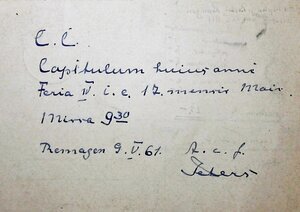 C. C.
Capitulum huius anni
Feria IV. i. e. 17. mensis Maii.
Missa 9 30
Remagen 9. V. 61. A. c. f.